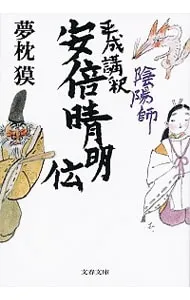 平成講釈
安倍晴明伝
陰陽師
夢枕獏
文春文庫